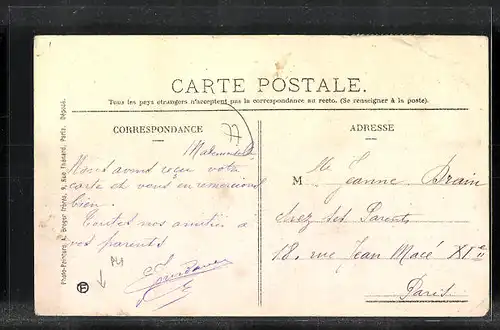 CARTE POSTALE.
Tous les pays étrangers n'acceptent pas la correspondance au recto. (Se renseigner à la poste).
CORRESPONDANCE
77
Mademoiselle
Nous avons reçu votre
carte et vous en remercions
bien.
Toutes nos amitiés à
vos parents
P41
ADRESSE
M lle Jeanne Drain
chez ses Parents
18, rue Jean Macé XIe
Paris
Photo-Peinture, A. Breger frères, 9, Rue Thénard, Paris. Déposé.